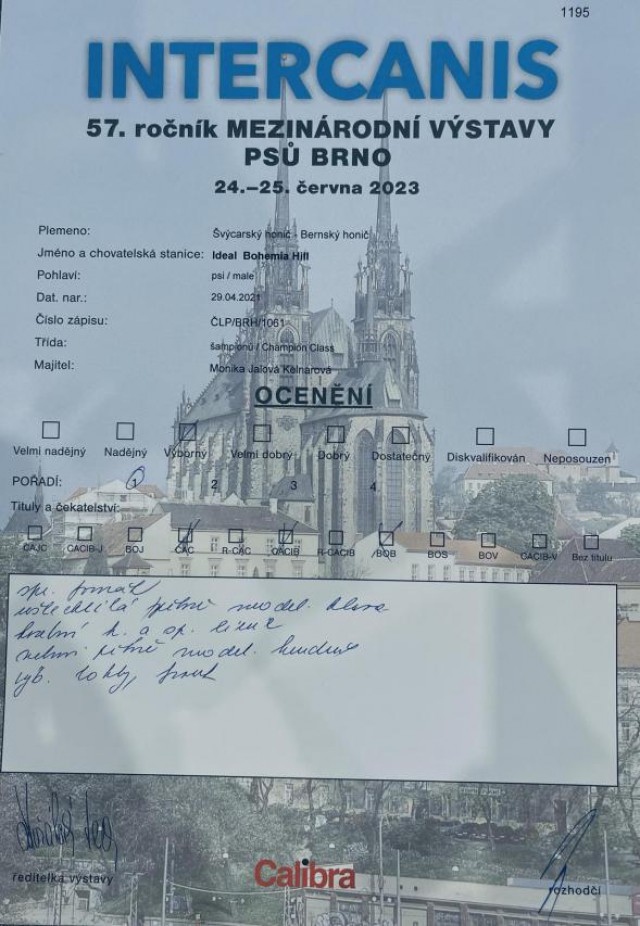 1195
INTERCANIS
57. ročník MEZINÁRODNÍ VÝSTAVY
PSŮ BRNO
24.–25. června 2023
Plemeno: Švýcarský honič - Bernský honič
Jméno a chovatelská stanice: Ideal Bohemia Hill
Pohlaví: psi / male
Dat. nar.: 29.04.2021
Číslo zápisu: ČLP/BRH/1061
Třída: šampionů / Champion Class
Majitel: Monika Jalová Kelnarová
OCENĚNÍ
Velmi nadějný Nadějný Výborný Velmi dobrý Dobrý Dostatečný Diskvalifikován Neposouzen
POŘADÍ: 1 2 3 4
Tituly a čekatelství:
CAJC CACIB-J BOJ CAC R-CAC CACIB R-CACIB BOB BOS BOV CACIB-V Bez titulu
spr. formát
ušlechtilá pěkně model. hlava
a sp. linie
velmi pěkně model. hrudník
výb. front
ředitelka výstavy
Calibra
rozhodčí